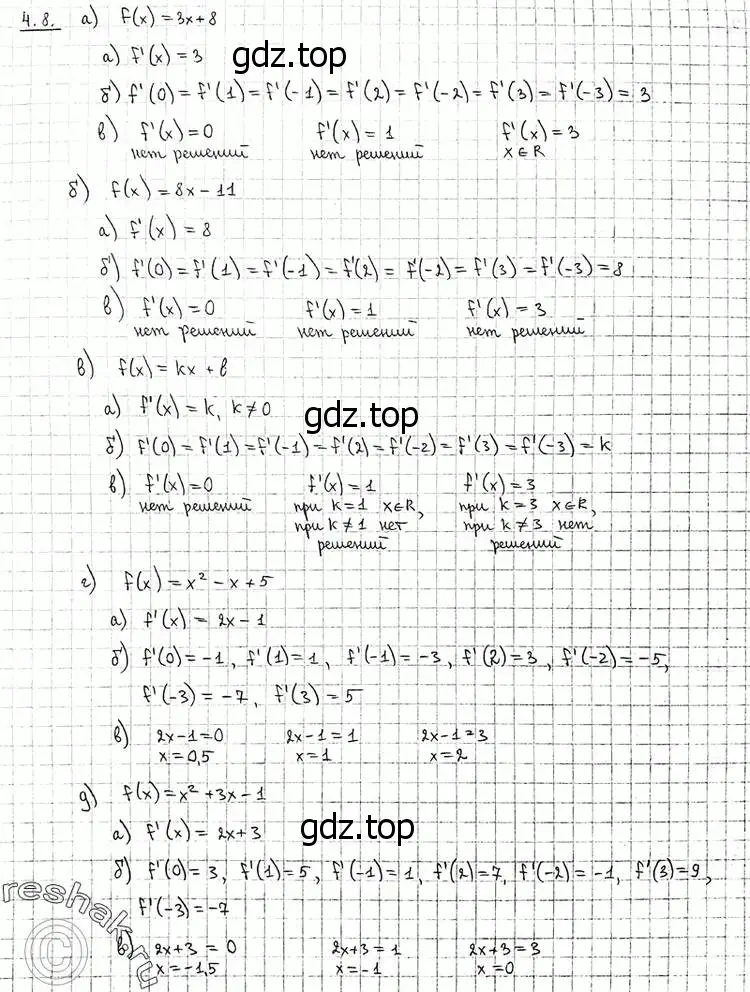 4.8. а) f(x) = 3x+8
а) f'(x) = 3
gdz.top
б) f'(0) = f'(1) = f'(-1) = f'(2) = f'(-2) = f'(3) = f'(-3) = 3
в) f'(x) = 0 f'(x) = 1 f'(x) = 3
нет решений нет решений x∈R
б) f(x) = 8x-11
а) f'(x) = 8
б) f'(0) = f'(1) = f'(-1) = f'(2) = f'(-2) = f'(3) = f'(-3) = 8
в) f'(x) = 0 f'(x) = 1 f'(x) = 3
нет решений нет решений нет решений
в) f(x) = kx + b
а) f'(x) = k, k≠0
gdz.top
б) f'(0) = f'(1) = f'(-1) = f'(2) = f'(-2) = f'(3) = f'(-3) = k
в) f'(x) = 0 f'(x) = 1 f'(x) = 3
нет решений при k=1 x∈R, при k=3 x∈R,
при k≠1 нет при k≠3 нет
решений решений
г) f(x) = x² - x + 5
а) f'(x) = 2x-1
б) f'(0) = -1, f'(1) = 1, f'(-1) = -3, f'(2) = 3, f'(-2) = -5,
f'(-3) = -7, f'(3) = 5
в) 2x-1=0 2x-1=1 2x-1=3
x=0,5 x=1 x=2
д) f(x) = x² + 3x - 1
а) f'(x) = 2x+3
gdz.top
б) f'(0) = 3, f'(1) = 5, f'(-1) = 1, f'(2) = 7, f'(-2) = -1, f'(3) = 9,
f'(-3) = -7
в) 2x+3 = 0 2x+3 = 1 2x+3 = 3
x=-1,5 x=-1 x=0
reshak.ru